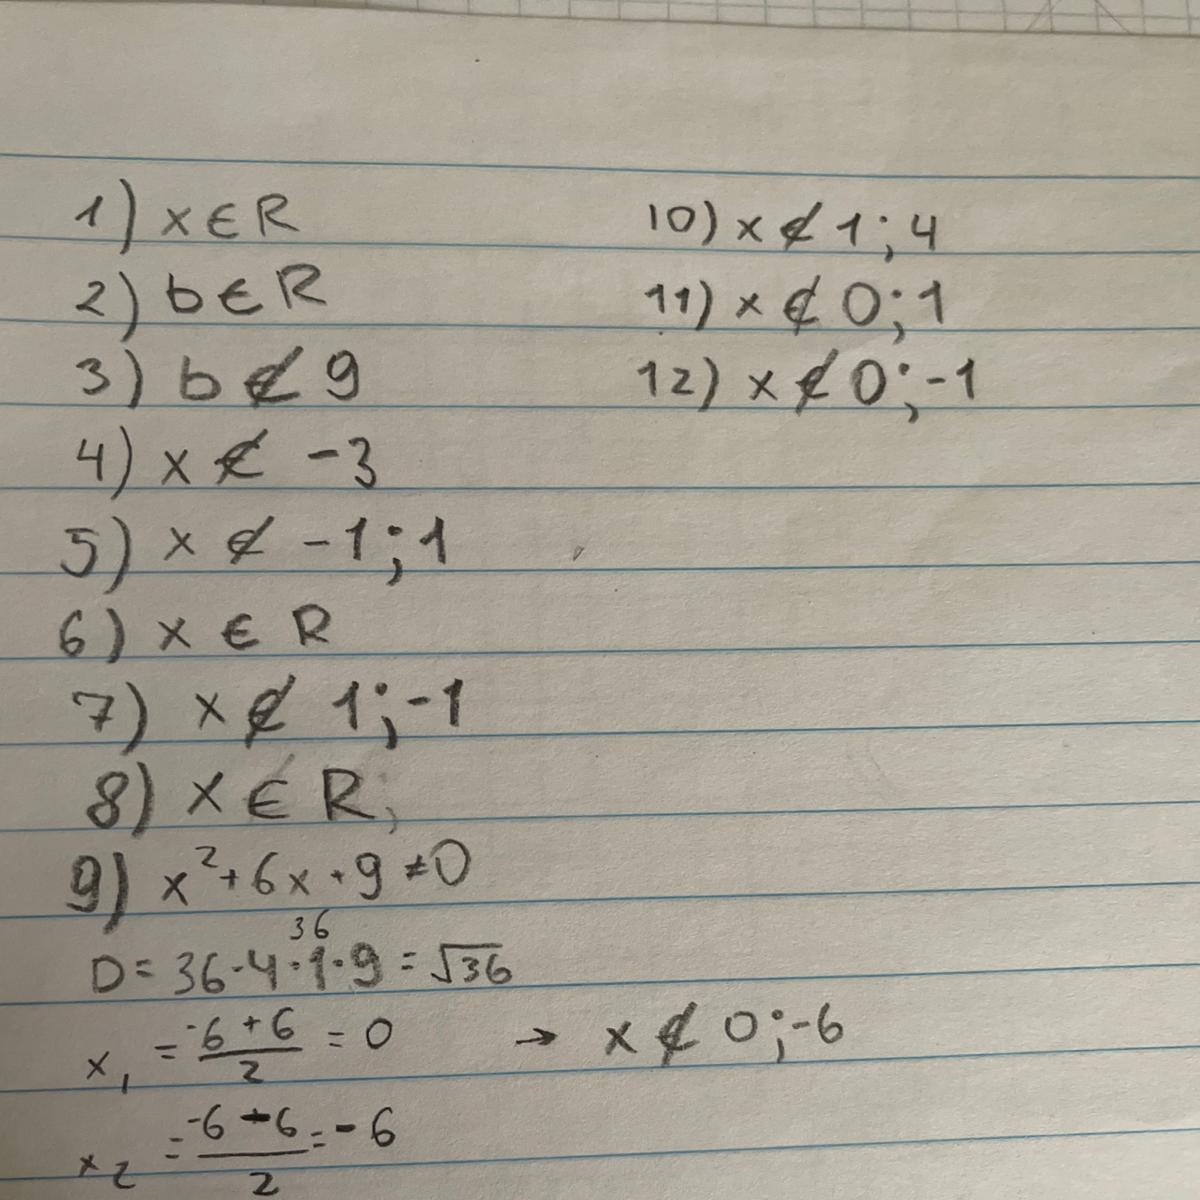 1) x ∈ R
2) b ∈ R
3) b ∉ 9
4) x ∉ -3
5) x ∉ -1;1
6) x ∈ R
7) x ∉ 1;-1
8) x ∈ R;
9) x²+6x+9≠0
36
D=36-4·1·9=√36
x₁ = (-6+6)/2 = 0 → x ∉ 0;-6
x₂ = (-6-6)/2 = -6
10) x ∉ 1;4
11) x ∉ 0;1
12) x ∉ 0;-1